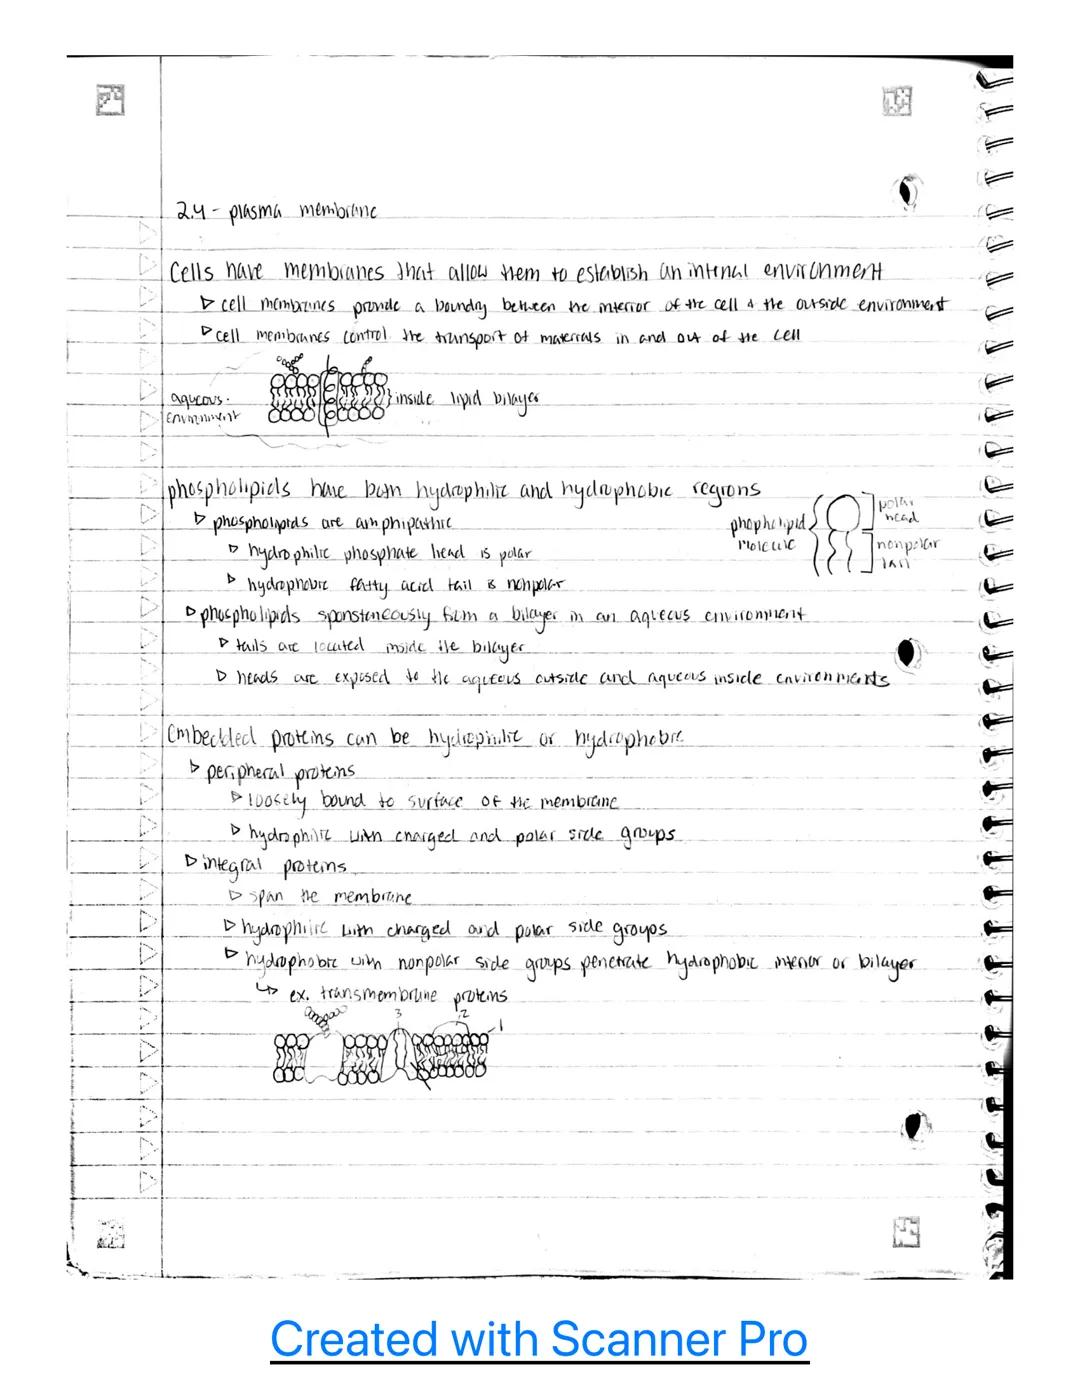 2.4 - plasma membrane
Cells have membranes that allow them to establish an internal environment
▷ cell membranes provide a boundry between the interior of the cell & the outside environment
▷ cell membranes control the transport of materials in and out of the cell
aqueous
environment
} inside lipid bilayer
phospholipids have both hydrophilic and hydrophobic regions
▷ phospholipids are amphipathic
▷ hydrophilic phosphate head is polar
▷ hydrophobic fatty acid tail is nonpolar
phopholipid
molecule
polar
head
nonpolar
tail
▷ phospholipids sponstaneously form a bilayer in an aqueous environment
▷ tails are located inside the bilayer
▷ heads are exposed to the aqueous outside and aqueous inside environments
Embedded proteins can be hydrophilic or hydrophobic
▷ peripheral proteins
▷ loosely bound to surface of the membrane
▷ hydrophilic with charged and polar side groups
▷ integral proteins
▷ span the membrane
▷ hydrophilic with charged and polar side groups
▷ hydrophobic with nonpolar side groups penetrate hydrophobic interior or bilayer
↳ ex. transmembrane proteins
3 2 1
Created with Scanner Pro